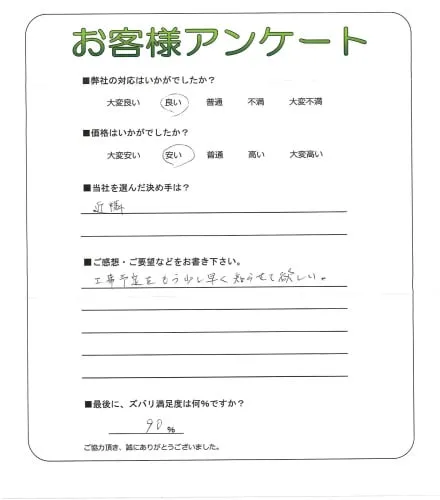 お客様アンケート
■弊社の対応はいかがでしたか?
大変良い 良い 普通 不満 大変不満
■価格はいかがでしたか?
大変安い 安い 普通 高い 大変高い
■当社を選んだ決め手は?
近隣
■ご感想・ご要望などをお書き下さい。
工事予定をもう少し早く知らせて欲しい。
■最後に、ズバリ満足度は何%ですか?
90 %
ご協力頂き、誠にありがとうございました。